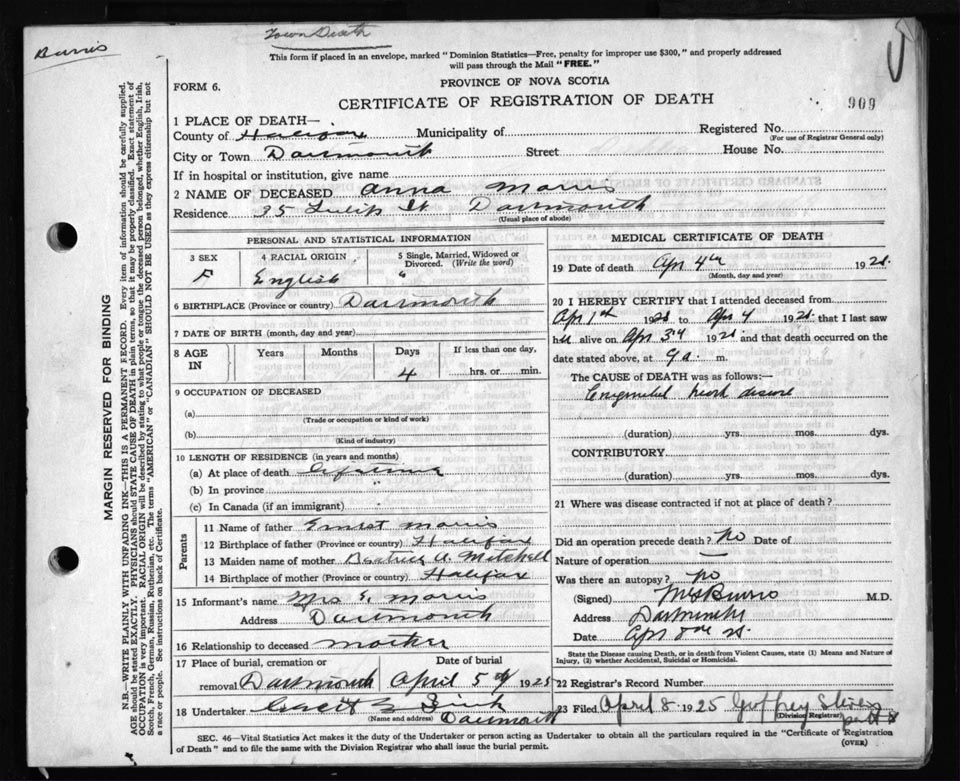 Burris
Town Death
This form if placed in an envelope, marked "Dominion Statistics—Free, penalty for improper use $300," and properly addressed
will pass through the Mail "FREE."
FORM 6.
PROVINCE OF NOVA SCOTIA
CERTIFICATE OF REGISTRATION OF DEATH
909
1 PLACE OF DEATH—
County of Halifax Municipality of
Registered No.
(For use of Registrar General only)
City or Town Dartmouth Street House No.
If in hospital or institution, give name
2 NAME OF DECEASED Anna Morris
Residence 35 Tulip St Dartmouth
(Usual place of abode)
PERSONAL AND STATISTICAL INFORMATION
3 SEX
F
4 RACIAL ORIGIN
English
5 Single, Married, Widowed or
Divorced. (Write the word)
6 BIRTHPLACE (Province or country) Dartmouth
7 DATE OF BIRTH (month, day and year)
8 AGE
IN
Years Months Days If less than one day,
4 hrs. or min.
9 OCCUPATION OF DECEASED
(a)
(Trade or occupation or kind of work)
(b)
(Kind of industry)
10 LENGTH OF RESIDENCE (in years and months)
(a) At place of death Lifetime
(b) In province "
(c) In Canada (if an immigrant)
Parents
11 Name of father Ernest Morris
12 Birthplace of father (Province or country) Halifax
13 Maiden name of mother Beatrice A. Mitchell
14 Birthplace of mother (Province or country) Halifax
15 Informant's name Mrs E. Morris
Address Dartmouth
16 Relationship to deceased mother
17 Place of burial, cremation or Date of burial
removal Dartmouth April 5th 1925
18 Undertaker
(Name and address) Dartmouth
MEDICAL CERTIFICATE OF DEATH
19 Date of death Apr 4th 1925.
(Month, day and year)
20 I HEREBY CERTIFY that I attended deceased from
Apr 1st 1925 to Apr 4 1925. that I last saw
her alive on Apr 3rd 1925 and that death occurred on the
date stated above, at 9 a. m.
The CAUSE OF DEATH was as follows:—
Congenital heart disease
(duration) yrs. mos. dys.
CONTRIBUTORY
(duration) yrs. mos. dys.
21 Where was disease contracted if not at place of death?
Did an operation precede death? No Date of
Nature of operation —
Was there an autopsy? No
(Signed) Burris M.D.
Address Dartmouth
Date Apr 8th 25.
State the Disease causing Death, or in death from Violent Causes, state (1) Means and Nature of
Injury, (2) whether Accidental, Suicidal or Homicidal.
22 Registrar's Record Number
23 Filed April 8 1925 Geoffrey Stevens
(Division Registrar)
(OVER)
SEC. 46—Vital Statistics Act makes it the duty of the Undertaker or person acting as Undertaker to obtain all the particulars required in the "Certificate of Registration
of Death" and to file the same with the Division Registrar who shall issue the burial permit.
MARGIN RESERVED FOR BINDING
N.B.—WRITE PLAINLY WITH UNFADING INK—THIS IS A PERMANENT RECORD. Every item of information should be carefully supplied.
AGE should be stated EXACTLY. PHYSICIANS should STATE CAUSE OF DEATH in plain terms, so that it may be properly classified. Exact statement of
OCCUPATION is very important. RACIAL ORIGIN will be described by stating to what people or tongue the deceased person belonged, whether English, Irish,
Scotch, French, German, Russian, Ruthenian, etc. The terms "AMERICAN" or "CANADIAN" SHOULD NOT BE USED as they express citizenship but not
a race or people. See instructions on back of Certificate.